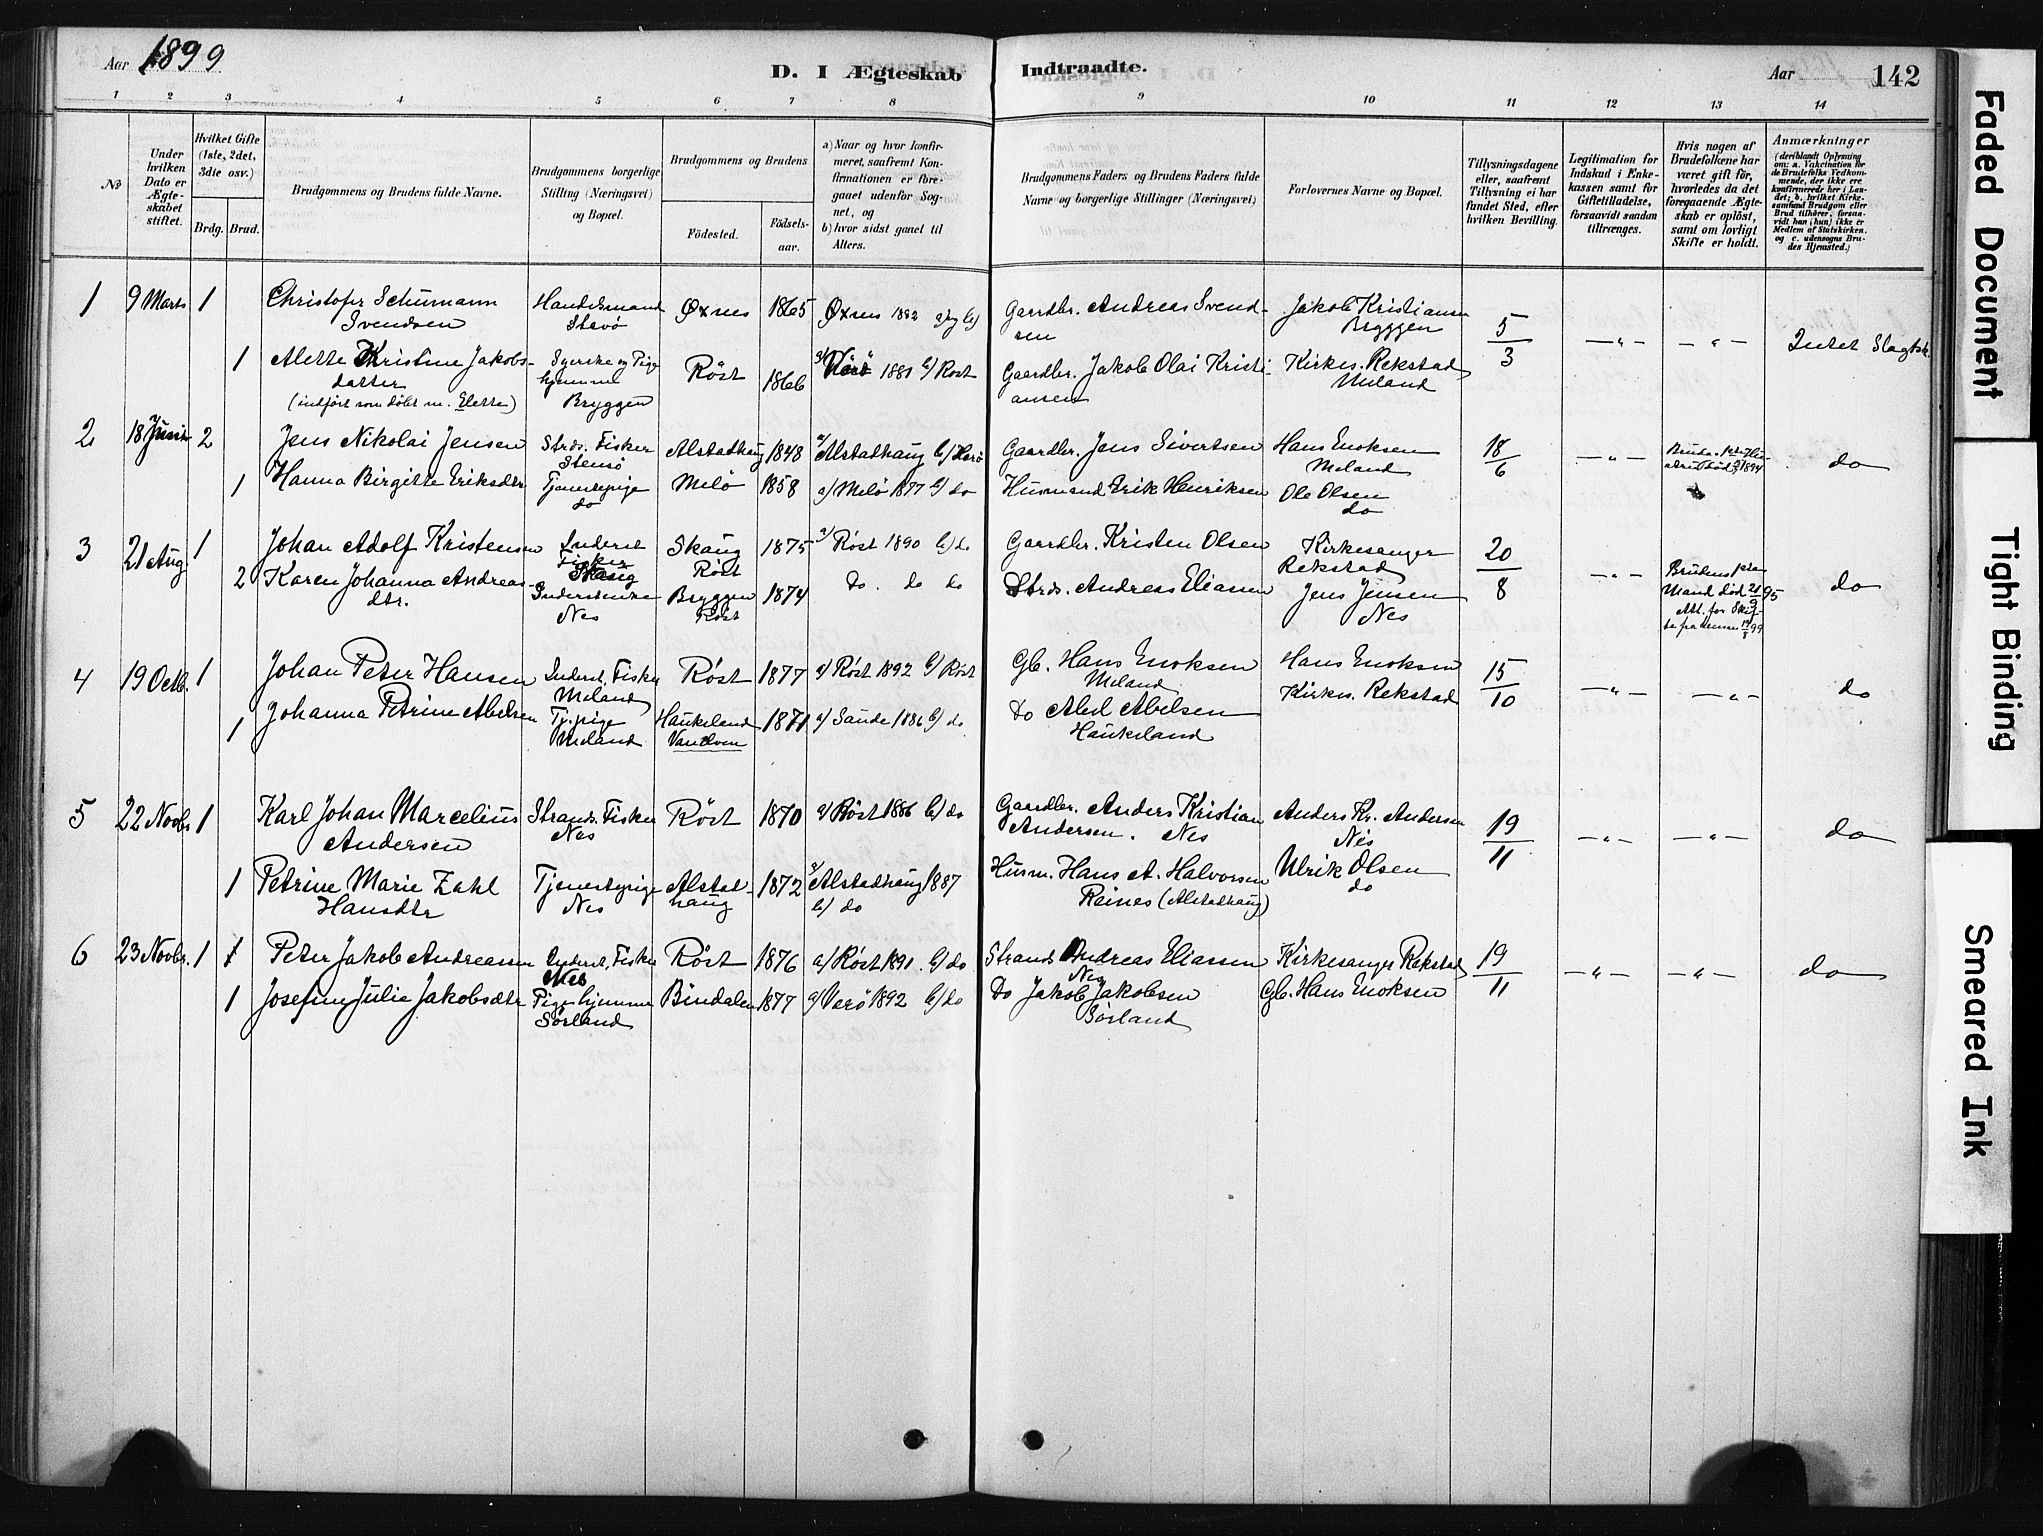 Aar 1899
D. I Ægteskab Indtraadte.
Aar 142
1 2 3 4 5 6 7 8 9 10 11 12 13 14
No
Under hvilken Dato er Ægteskabet stiftet.
Hvilket Gifte (1ste, 2det, 3die osv.)
Brdg. Brud.
Brudgommens og Brudens fulde Navne.
Brudgommens borgerlige Stilling (Næringsvei) og Bopæl.
Brudgommens og Brudens
Fødested.
Fødselsaar.
a) Naar og hvor konfirmeret, saafremt Konfirmationen er foregaaet udenfor Sognet, og
b) hvor sidst gaaet til Alters.
Brudgommens Faders og Brudens Faders fulde Navne og borgerlige Stillinger (Næringsvei)
Forlovernes Navne og Bopæl.
Tillysningsdagene eller, saafremt Tillysning ei har fundet Sted, efter hvilken Bevilling.
Legitimation for Indskud i Enkekassen samt for Giftetilladelse, forsaavidt saadan tiltrænges.
Hvis nogen af Brudefolkene har været gift før, hvorledes da det foregaaende Ægteskab er opløst, samt om lovligt Skifte er holdt.
Anmærkninger
(deriblandt Oplysning om: a. Vakcination for de Brudefolks Vedkommende, der ikke ere konfirmerede her i Landet; b. hvilket Kirkesamfund Brudgom eller Brud tilhører, forsaavidt han (hun) ikke er Medlem af Statskirken, og c. udensogns Brudes Hjemsted.)
1 9 Marts 1 Christofer Schumann Svendsen Handelsmand Stavø Øxnes 1865 Øxnes 1882 Gaardbr. Andreas Svendsen Jakob Kristiansen Bryggen 5/3 —"— —"— Intet Slagtsk.
1 Alette Kristine Jakobsdatter (indført som døbt m. Elette) Syerske og Pige hjemme Bryggen Röst 1866 a) Værö 1881 b) Röst Gaardbr. Jakob Olai Kristiansen Kirkes. Rekstad Meland
2 18 Juni 2 Jens Nikolai Jensen Strds. Fisker Stensö Alstadhaug 1848 a) Alstadhaug b) Herö Gaardbr. Jens Sivertsen Hans Enoksen Meland 18/6 —"— do
1 Hanna Birgitte Eriksdtr Tjenestepige do Melö 1858 a) Melö 1877 b) do Husmand Erik Henriksen Ole Olsen do
3 21 Aug. 1 Johan Adolf Kristensen Inderst Fisker Skaug Skaug Röst 1875 a) Röst 1890 b) do Gaardbr. Kristen Olsen Kirkesanger Rekstad 20/8 —"— Brudens 1ste Mand död 21/9 95 do
2 Karen Johanna Andreasdtr. Inderstenke Nes Bryggen Röst 1874 do. do do Strds. Andreas Eliassen Jens Jensen Nes Att. for Skifte fra
4 19 Octb. 1 Johan Peter Hansen Inderst, Fisker Meland Röst 1877 a) Röst 1892 b) Röst Gb. Hans Enoksen Meland Hans Enoksen 15/10 —"— —"— do
1 Johanna Petrine Abelsen Tj.pige Meland Haukeland Vandven 1871 a) Sande 1886 b) do Do Abel Abelsen Haukeland Kirkes. Rekstad
5 22 Novbr 1 Karl Johan Marcelius Andersen Strands. Fisker Nes Röst 1870 a) Röst 1886 b) do Gaardbr. Anders Kristian Andersen. Nes Anders Kr. Andersen Nes 19/11 —"— —"— do
1 Petrine Marie Zahl Hansdtr Tjenestepige Nes Alstadhaug 1872 a) Alstadhaug 1887 b) do Husm. Hans A. Halvorsen Reines (Alstadhaug) Ulrik Olsen do
6 23 Novbr. 1 Peter Jakob Andreassen Inderst, Fisker Nes Röst 1876 a) Röst 1891. b) do Strands Andreas Eliassen Nes Kirkesanger Rekstad 19/11 —"— —"— do
1 Josefine Julie Jakobsdtr Pige hjemme Sörland Bindalen 1877 a) Verö 1892 b) do Do Jakob Jakobsen Sörland Gb. Hans Enoksen
Faded Document
Tight Binding
Smeared Ink